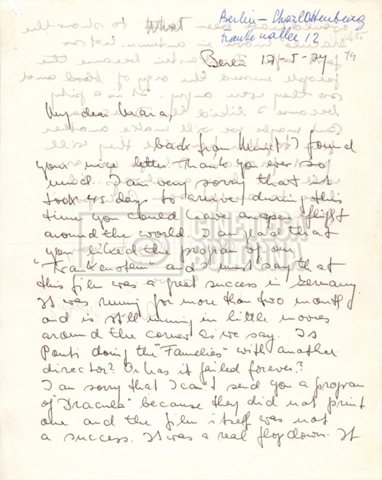 Berlin - Charlottenburg
Frankenallee 12
Berlin 17-5-74
My dear Maria,
back from I found
your nice letter. Thank you ever so
much. I am very sorry that it
took 45 days to arrive, during this
time you could have an open flight
around the world. I am glad that
you liked the program of our
"Frankenstein" and I must say that
this film was a great success in Germany
It was runing for more than two months
and is still runing in little movies
around the corner as we say. Is
Ponti doing the "Families" with another
director? Or has it failed forever?
I am sorry that I can't send you a program
of "Dracula" because they did not print
one and the film itself was not
a success. It was a real flop down. It